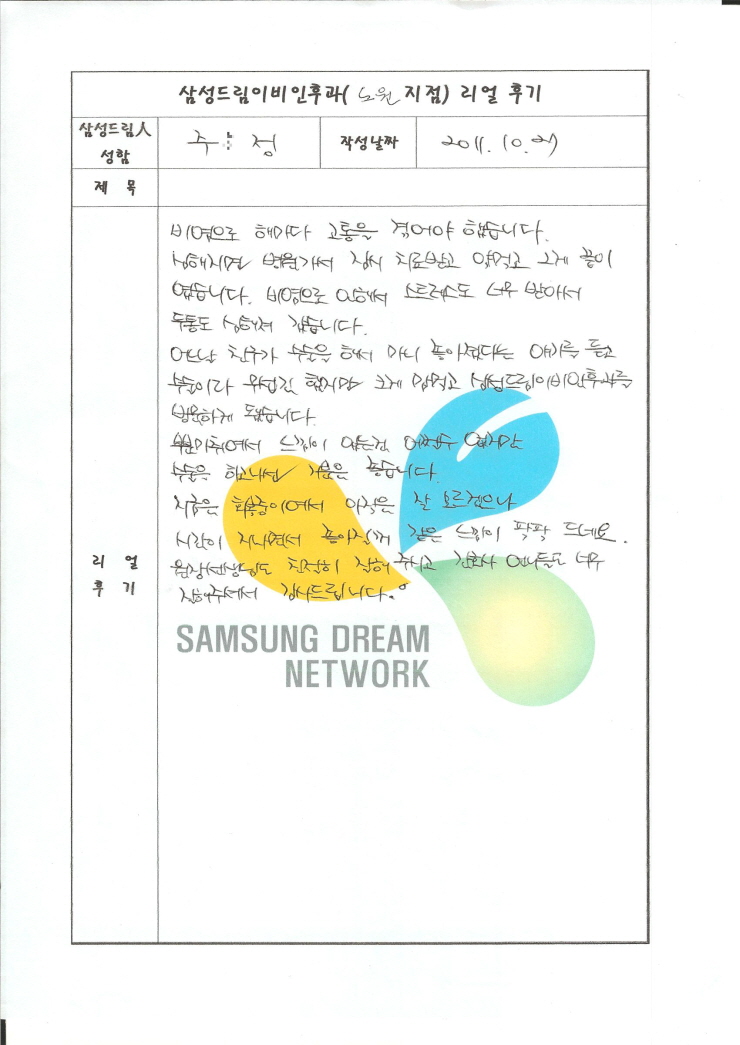 삼성드림이비인후과( 노원 지점) 리얼 후기
삼성드림人
성함
주 정
작성날짜
2011. 10. 27
제 목
비염으로 해마다 고통을 겪어야 했습니다.
심해지면 병원가서 잠시 치료받고 약먹고 그게 끝이
였습니다. 비염으로 인해서 스트레스도 너무 받아서
두통도 심해져 갔습니다.
어느날 친구가 수술을 해서 마니 좋아졌다는 얘기를 듣고
수술이라 무섭긴 했지만 그게 맘먹고 삼성드림이비인후과를
방문하게 됐습니다.
부분마취여서 느낌이 있는건 어쩔수 없지만
수술은 하고나선 기분은 좋습니다.
지금은 회복중이여서 아직은 잘 모르겠으나
시간이 지나면서 좋아질꺼 같은 느낌이 팍팍 드네요.
원장선생님도 친절히 잘해 주시고 간호사 언니들도 너무
잘해주셔서 감사드립니다.
리 얼
후 기
SAMSUNG DREAM
NETWORK